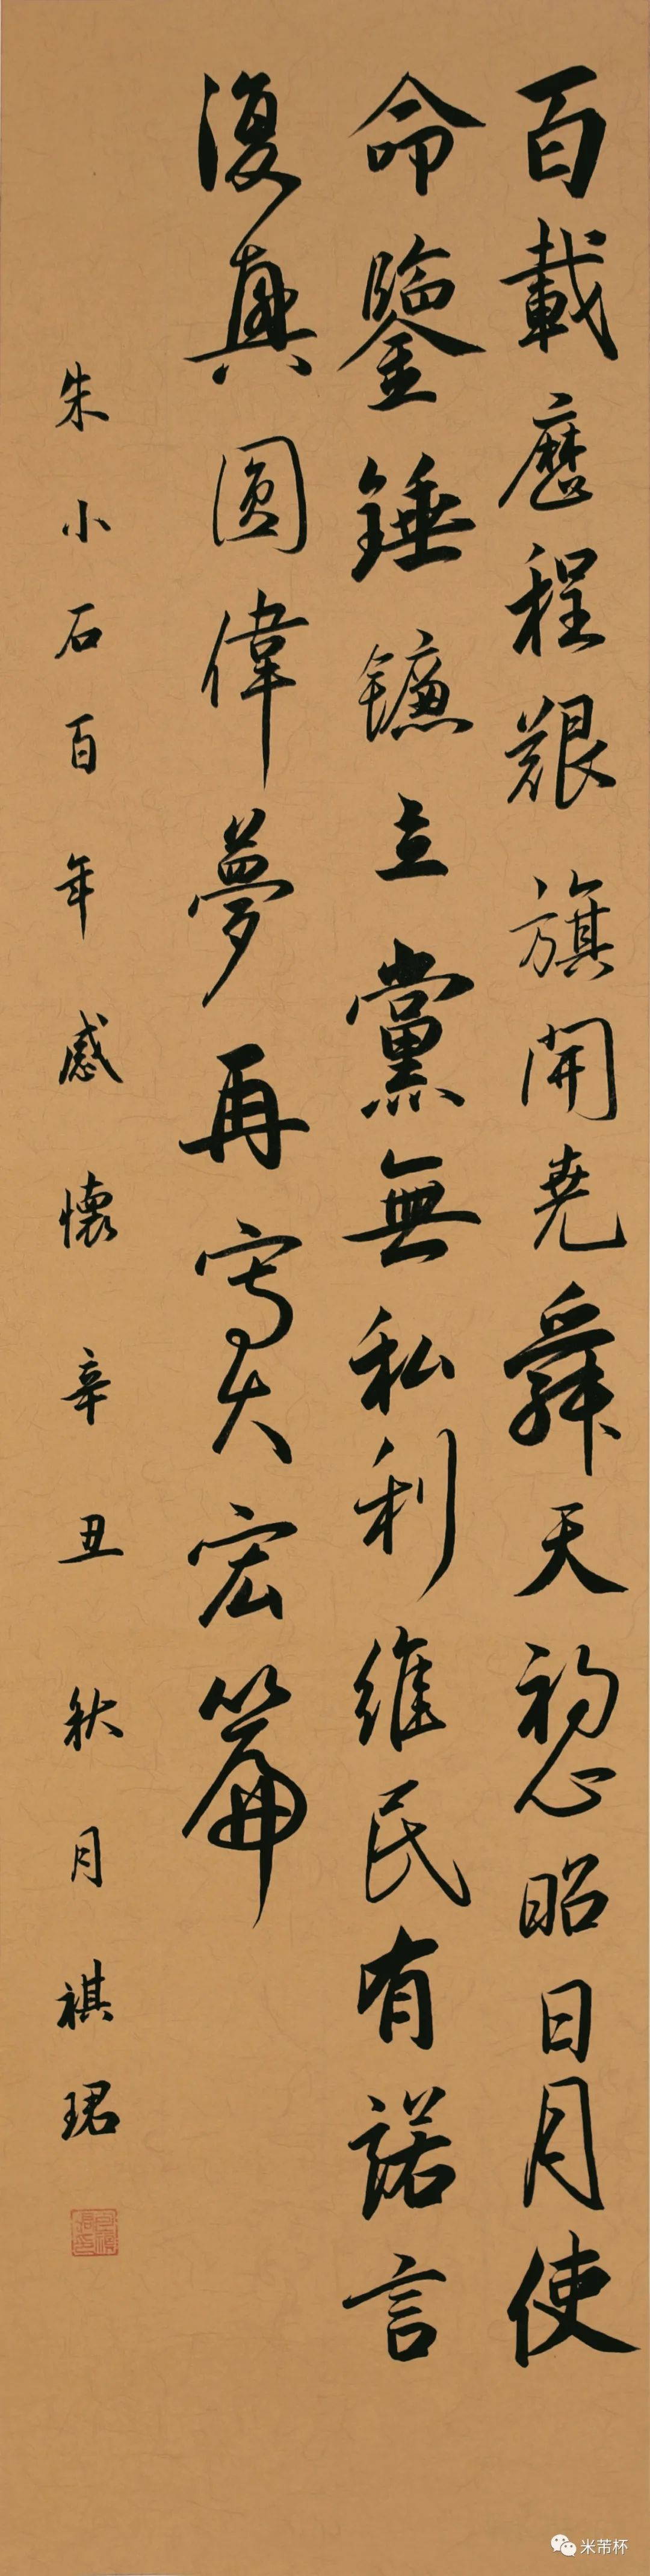 百載歷程艱旗開堯舜天初心昭日月使
命鑒錘鐮立黨無私利維民有諾言
復興圓偉夢再寫大宏篇
朱小石百年感懷辛丑秋月祺珺
米芾杯